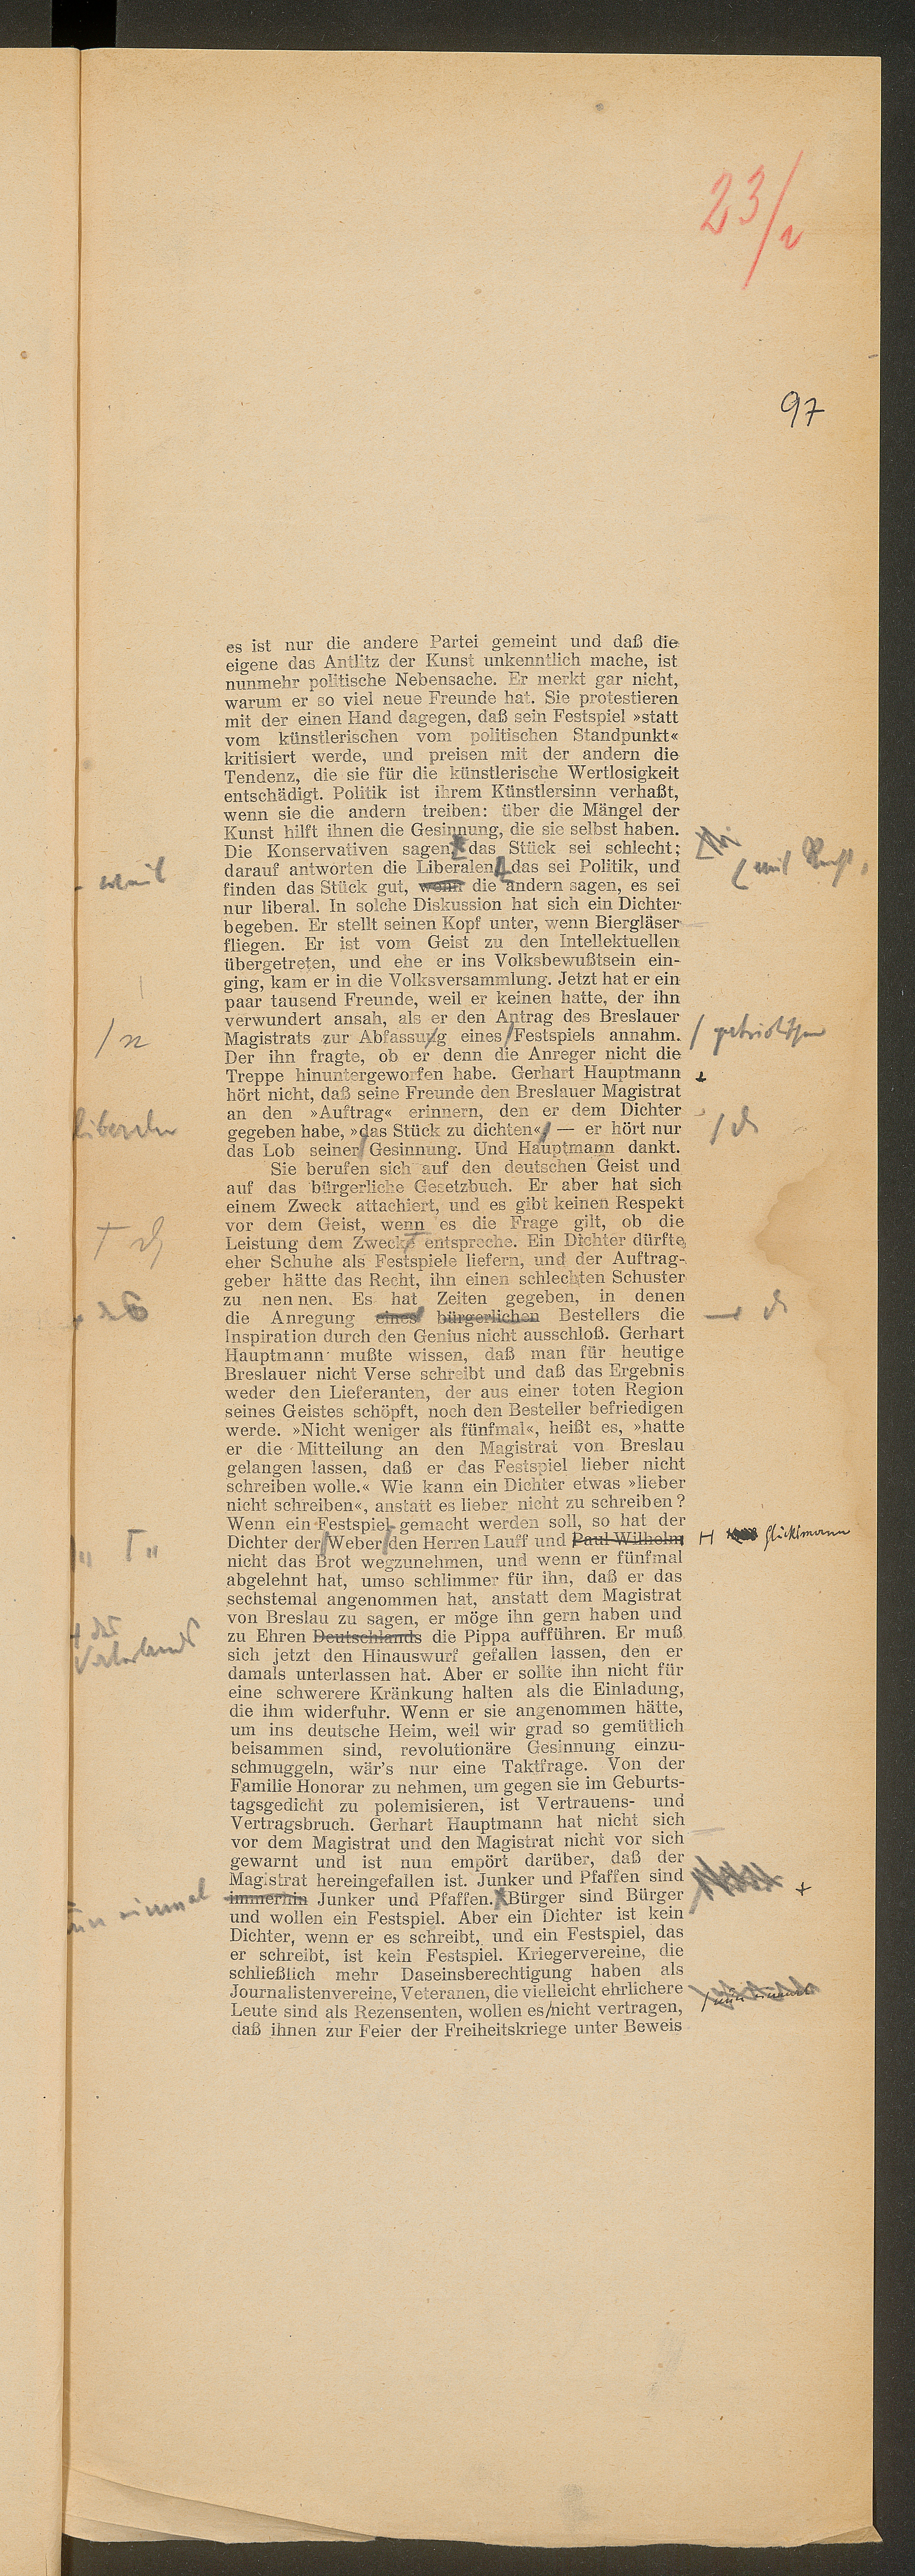 23/
97
es ist nur die andere Partei gemeint und daß die
eigene das Antlitz der Kunst unkenntlich mache, ist
nunmehr politische Nebensache. Er merkt gar nicht,
warum er so viel neue Freunde hat. Sie protestieren
mit der einen Hand dagegen, daß sein Festspiel »statt
vom künstlerischen vom politischen Standpunkt«
kritisiert werde, und preisen mit der andern die
Tendenz, die sie für die künstlerische Wertlosigkeit
entschädigt. Politik ist ihrem Künstlersinn verhaßt,
wenn sie die andern treiben: über die Mängel der
Kunst hilft ihnen die Gesinnung, die sie selbst haben.
Die Konservativen sagen, das Stück sei schlecht;
darauf antworten die Liberalen, das sei Politik, und
(mit Recht,
weil
finden das Stück gut, wenn die andern sagen, es sei
nur liberal. In solche Diskussion hat sich ein Dichter
begeben. Er stellt seinen Kopf unter, wenn Biergläser
fliegen. Er ist vom Geist zu den Intellektuellen
übergetreten, und ehe er ins Volksbewußtsein ein-
ging, kam er in die Volksversammlung. Jetzt hat er ein
paar tausend Freunde, weil er keinen hatte, der ihn
verwundert ansah, als er den Antrag des Breslauer
/ n
Magistrats zur Abfassung eines Festspiels annahm.
/ patriotischen
Der ihn fragte, ob er denn die Anreger nicht die
Treppe hinuntergeworfen habe. Gerhart Hauptmann
hört nicht, daß seine Freunde den Breslauer Magistrat
an den »Auftrag« erinnern, den er dem Dichter
liberalen
gegeben habe, »das Stück zu dichten«, — er hört nur
das Lob seiner Gesinnung. Und Hauptmann dankt.
Sie berufen sich auf den deutschen Geist und
auf das bürgerliche Gesetzbuch. Er aber hat sich
einem Zweck attachiert, und es gibt keinen Respekt
vor dem Geist, wenn es die Frage gilt, ob die
Leistung dem Zwecke entspreche. Ein Dichter dürfte
eher Schuhe als Festspiele liefern, und der Auftrag-
geber hätte das Recht, ihn einen schlechten Schuster
zu nennen. Es hat Zeiten gegeben, in denen
die Anregung eines bürgerlichen Bestellers die
Inspiration durch den Genius nicht ausschloß. Gerhart
Hauptmann mußte wissen, daß man für heutige
Breslauer nicht Verse schreibt und daß das Ergebnis
weder den Lieferanten, der aus einer toten Region
seines Geistes schöpft, noch den Besteller befriedigen
werde. »Nicht weniger als fünfmal«, heißt es, »hatte
er die Mitteilung an den Magistrat von Breslau
gelangen lassen, daß er das Festspiel lieber nicht
schreiben wolle.« Wie kann ein Dichter etwas »lieber
nicht schreiben«, anstatt es lieber nicht zu schreiben?
Wenn ein Festspiel gemacht werden soll, so hat der
Dichter der Weber den Herren Lauff und Paul Wilhelm
Glücksmann
nicht das Brot wegzunehmen, und wenn er fünfmal
abgelehnt hat, umso schlimmer für ihn, daß er das
sechstemal angenommen hat, anstatt dem Magistrat
von Breslau zu sagen, er möge ihn gern haben und
zu Ehren Deutschlands die Pippa aufführen. Er muß
des
Vaterlands
sich jetzt den Hinauswurf gefallen lassen, den er
damals unterlassen hat. Aber er sollte ihn nicht für
eine schwerere Kränkung halten als die Einladung,
die ihm widerfuhr. Wenn er sie angenommen hätte,
um ins deutsche Heim, weil wir grad so gemütlich
beisammen sind, revolutionäre Gesinnung einzu-
schmuggeln, wär's nur eine Taktfrage. Von der
Familie Honorar zu nehmen, um gegen sie im Geburts-
tagsgedicht zu polemisieren, ist Vertrauens- und
Vertragsbruch. Gerhart Hauptmann hat nicht sich
vor dem Magistrat und den Magistrat nicht vor sich
gewarnt und ist nun empört darüber, daß der
Magistrat hereingefallen ist. Junker und Pfaffen sind
nun einmal
immerhin Junker und Pfaffen. Bürger sind Bürger
und wollen ein Festspiel. Aber ein Dichter ist kein
Dichter, wenn er es schreibt, und ein Festspiel, das
er schreibt, ist kein Festspiel. Kriegervereine, die
schließlich mehr Daseinsberechtigung haben als
Journalistenvereine, Veteranen, die vielleicht ehrlichere
Leute sind als Rezensenten, wollen es nicht vertragen,
/ nun einmal
daß ihnen zur Feier der Freiheitskriege unter Beweis